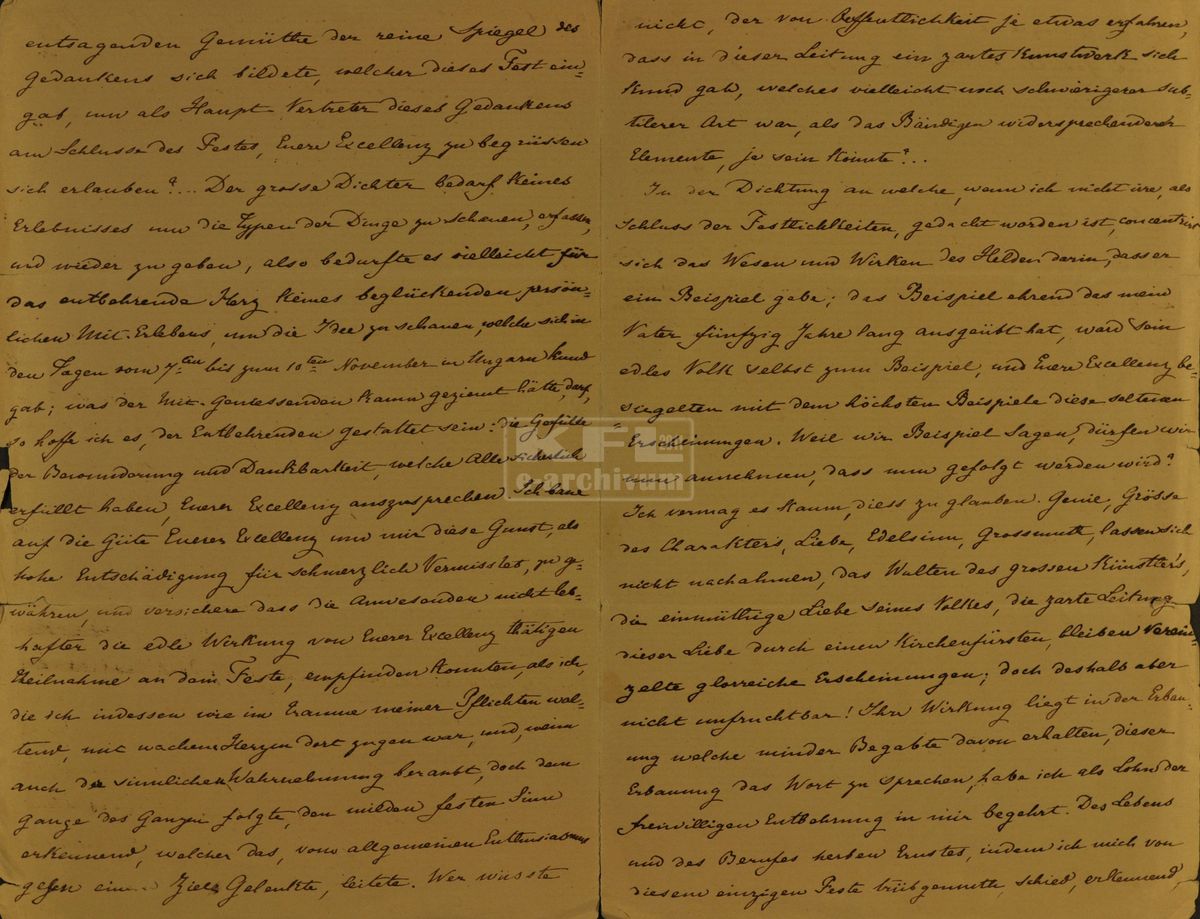 entsagenden Gemüthe der reine Spiegel des
Gedankens sich bildete, welcher dieses Fest ein-
gab, um als Haupt-Vertreter dieses Gedankens
am Schlusse des Festes, Euere Excellenz zu begrüssen
sich erlauben?... Der grosse Dichter bedarf keines
Erlebnisses um die Typen der Dinge zu schauen, erfassen,
und wieder zu geben, also bedurfte es vielleicht für
das entbehrende Herz keines beglückenden persön-
lichen Mit-Erlebens, um die Idee zu schauen, welche sich in
den Tagen vom 7ten bis zum 10ten November in Ungarn kund
gab; was der Mit-Geniessenden kaum geziemt hätte, darf,
so hoffe ich es, der Entbehrenden gestattet sein: die Gefühle
der Bewunderung und Dankbarkeit, welche Alle sicherlich
erfüllt haben, Euerer Excellenz auszusprechen. Ich baue
auf die Güte Euerer Excellenz um mir diese Gunst, als
hohe Entschädigung für schmerzlich Vermisstes, zu ge-
währen, und versichere dass die Anwesenden nicht leb-
hafter die edle Wirkung von Euerer Excellenz thätigen
Theilnahme an dem Feste, empfinden konnten, als ich,
die ich indessen wie im Traume meiner Pflichten wal-
tend, mit wachem Herzen dort zugegen war, und, wenn
auch der sinnlichen Wahrnehmung beraubt, doch dem
Gange des Ganzen folgte, den milden festen Sinn
erkennend, welcher das, vom allgemeinen Enthusiasmus
gegen ein Ziel Gelenkte, leitete. Wer wüsste
nicht, der von Oeffentlichkeit je etwas erfahren,
dass in dieser Leitung ein zartes Kunstwerk sich
kund gab, welches vielleicht noch schwierigerer sub-
tilerer Art war, als das Bändigen widersprechender
Elemente, je sein könnte?..
In der Dichtung an welche, wenn ich nicht irre, als
Schluss der Festlichkeiten, gedacht worden ist, concentrirt
sich das Wesen und Wirken des Helden darin, dass er
ein Beispiel gäbe; das Beispiel ehrend das mein
Vater fünfzig Jahre lang ausgeübt hat, ward sein
edles Volk selbst zum Beispiel, und Euere Excellenz be-
siegelten mit dem höchsten Beispiele diese seltenen
Erscheinungen. Weil wir Beispiel sagen, dürfen wir
nun annehmen, dass nun gefolgt werden wird?
Ich vermag es kaum, diess zu glauben. Genie, Grösse
des Charakters, Liebe, Edelsinn, Grossmuth, lassen sich
nicht nachahmen, das Walten des grossen Künstler's,
die einmüthige Liebe seines Volkes, die zarte Leitung
dieser Liebe durch einen Kirchenfürsten, bleiben verein-
zelte glorreiche Erscheinungen; doch deshalb aber
nicht unfruchtbar! Ihre Wirkung liegt in der Erbau-
ung welche minder Begabte davon erhalten, dieser
Erbauung das Wort zu sprechen, habe ich als Lohn der
freiwilligen Entbehrung in mir begehrt. Des Lebens
und des Berufes herben Ernstes, indem ich mich von
diesem einzigen Feste trübgemuthe, schied, erkennend,
KFL 2011
e-archivum